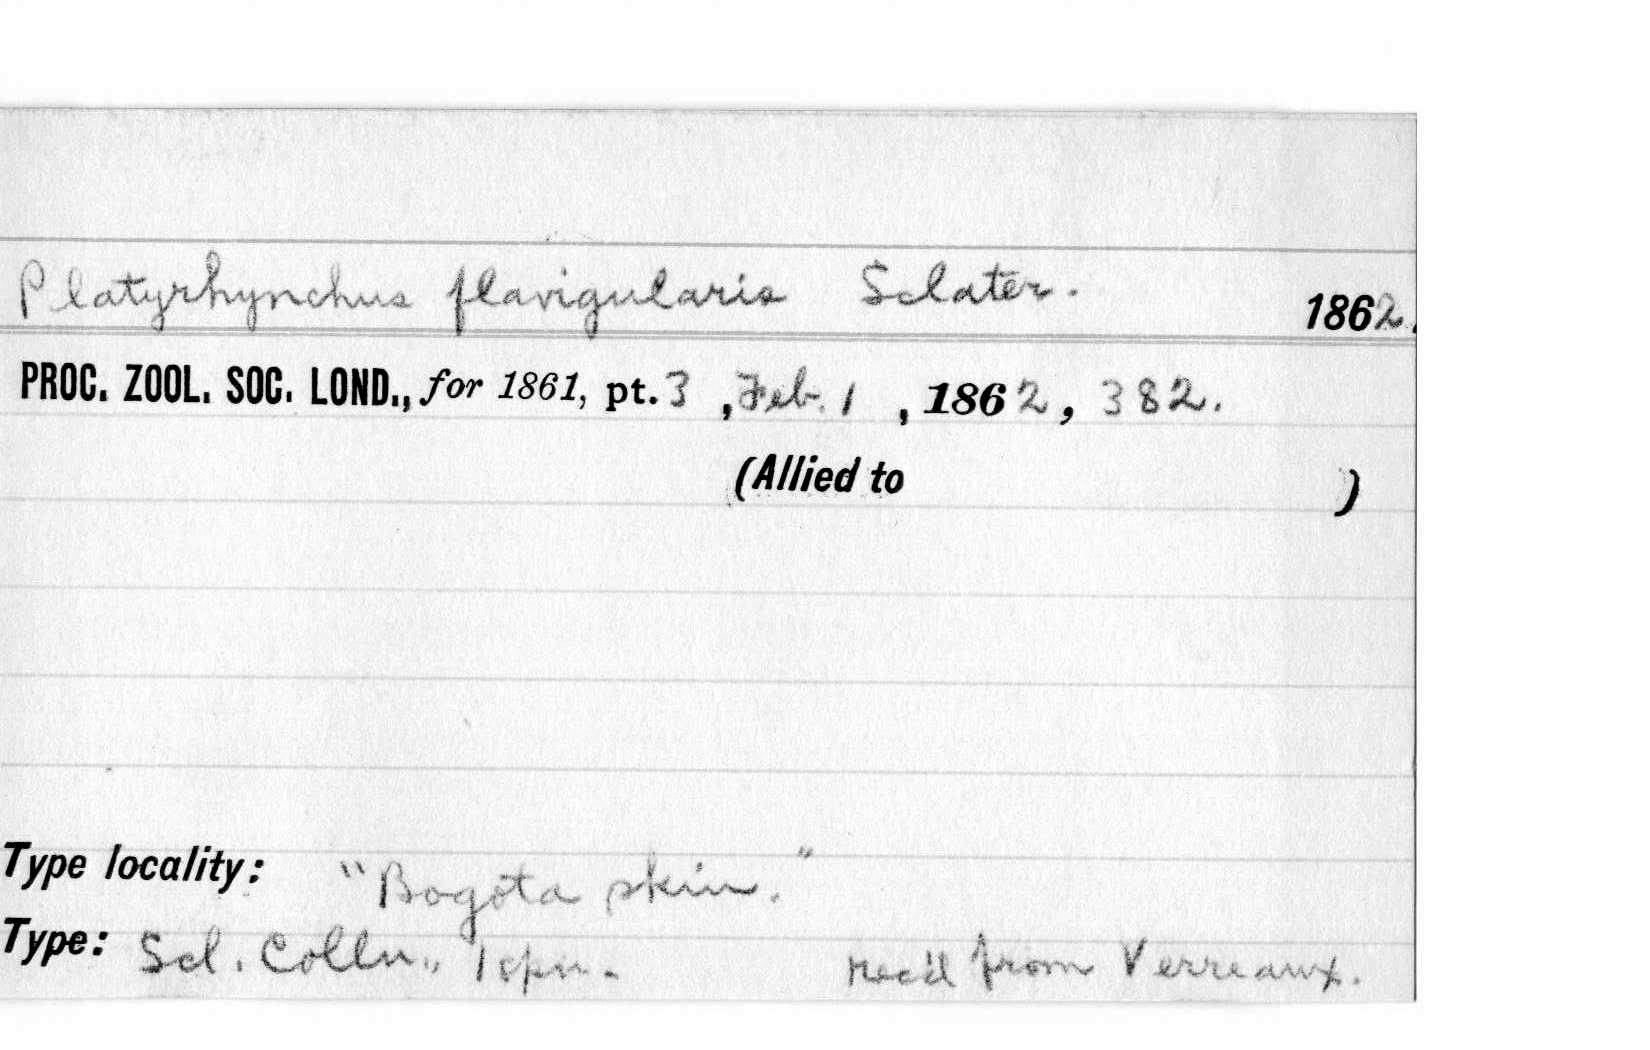 Platyrhynchus flavigularis Sclater. 1862.
PROC. ZOOL. SOC. LOND., for 1861, pt. 3, Feb. 1, 1862, 382.
(Allied to )
Type locality: "Bogota skin."
Type: Scl. Colln., 1 spn. rec'd from Verreaux.